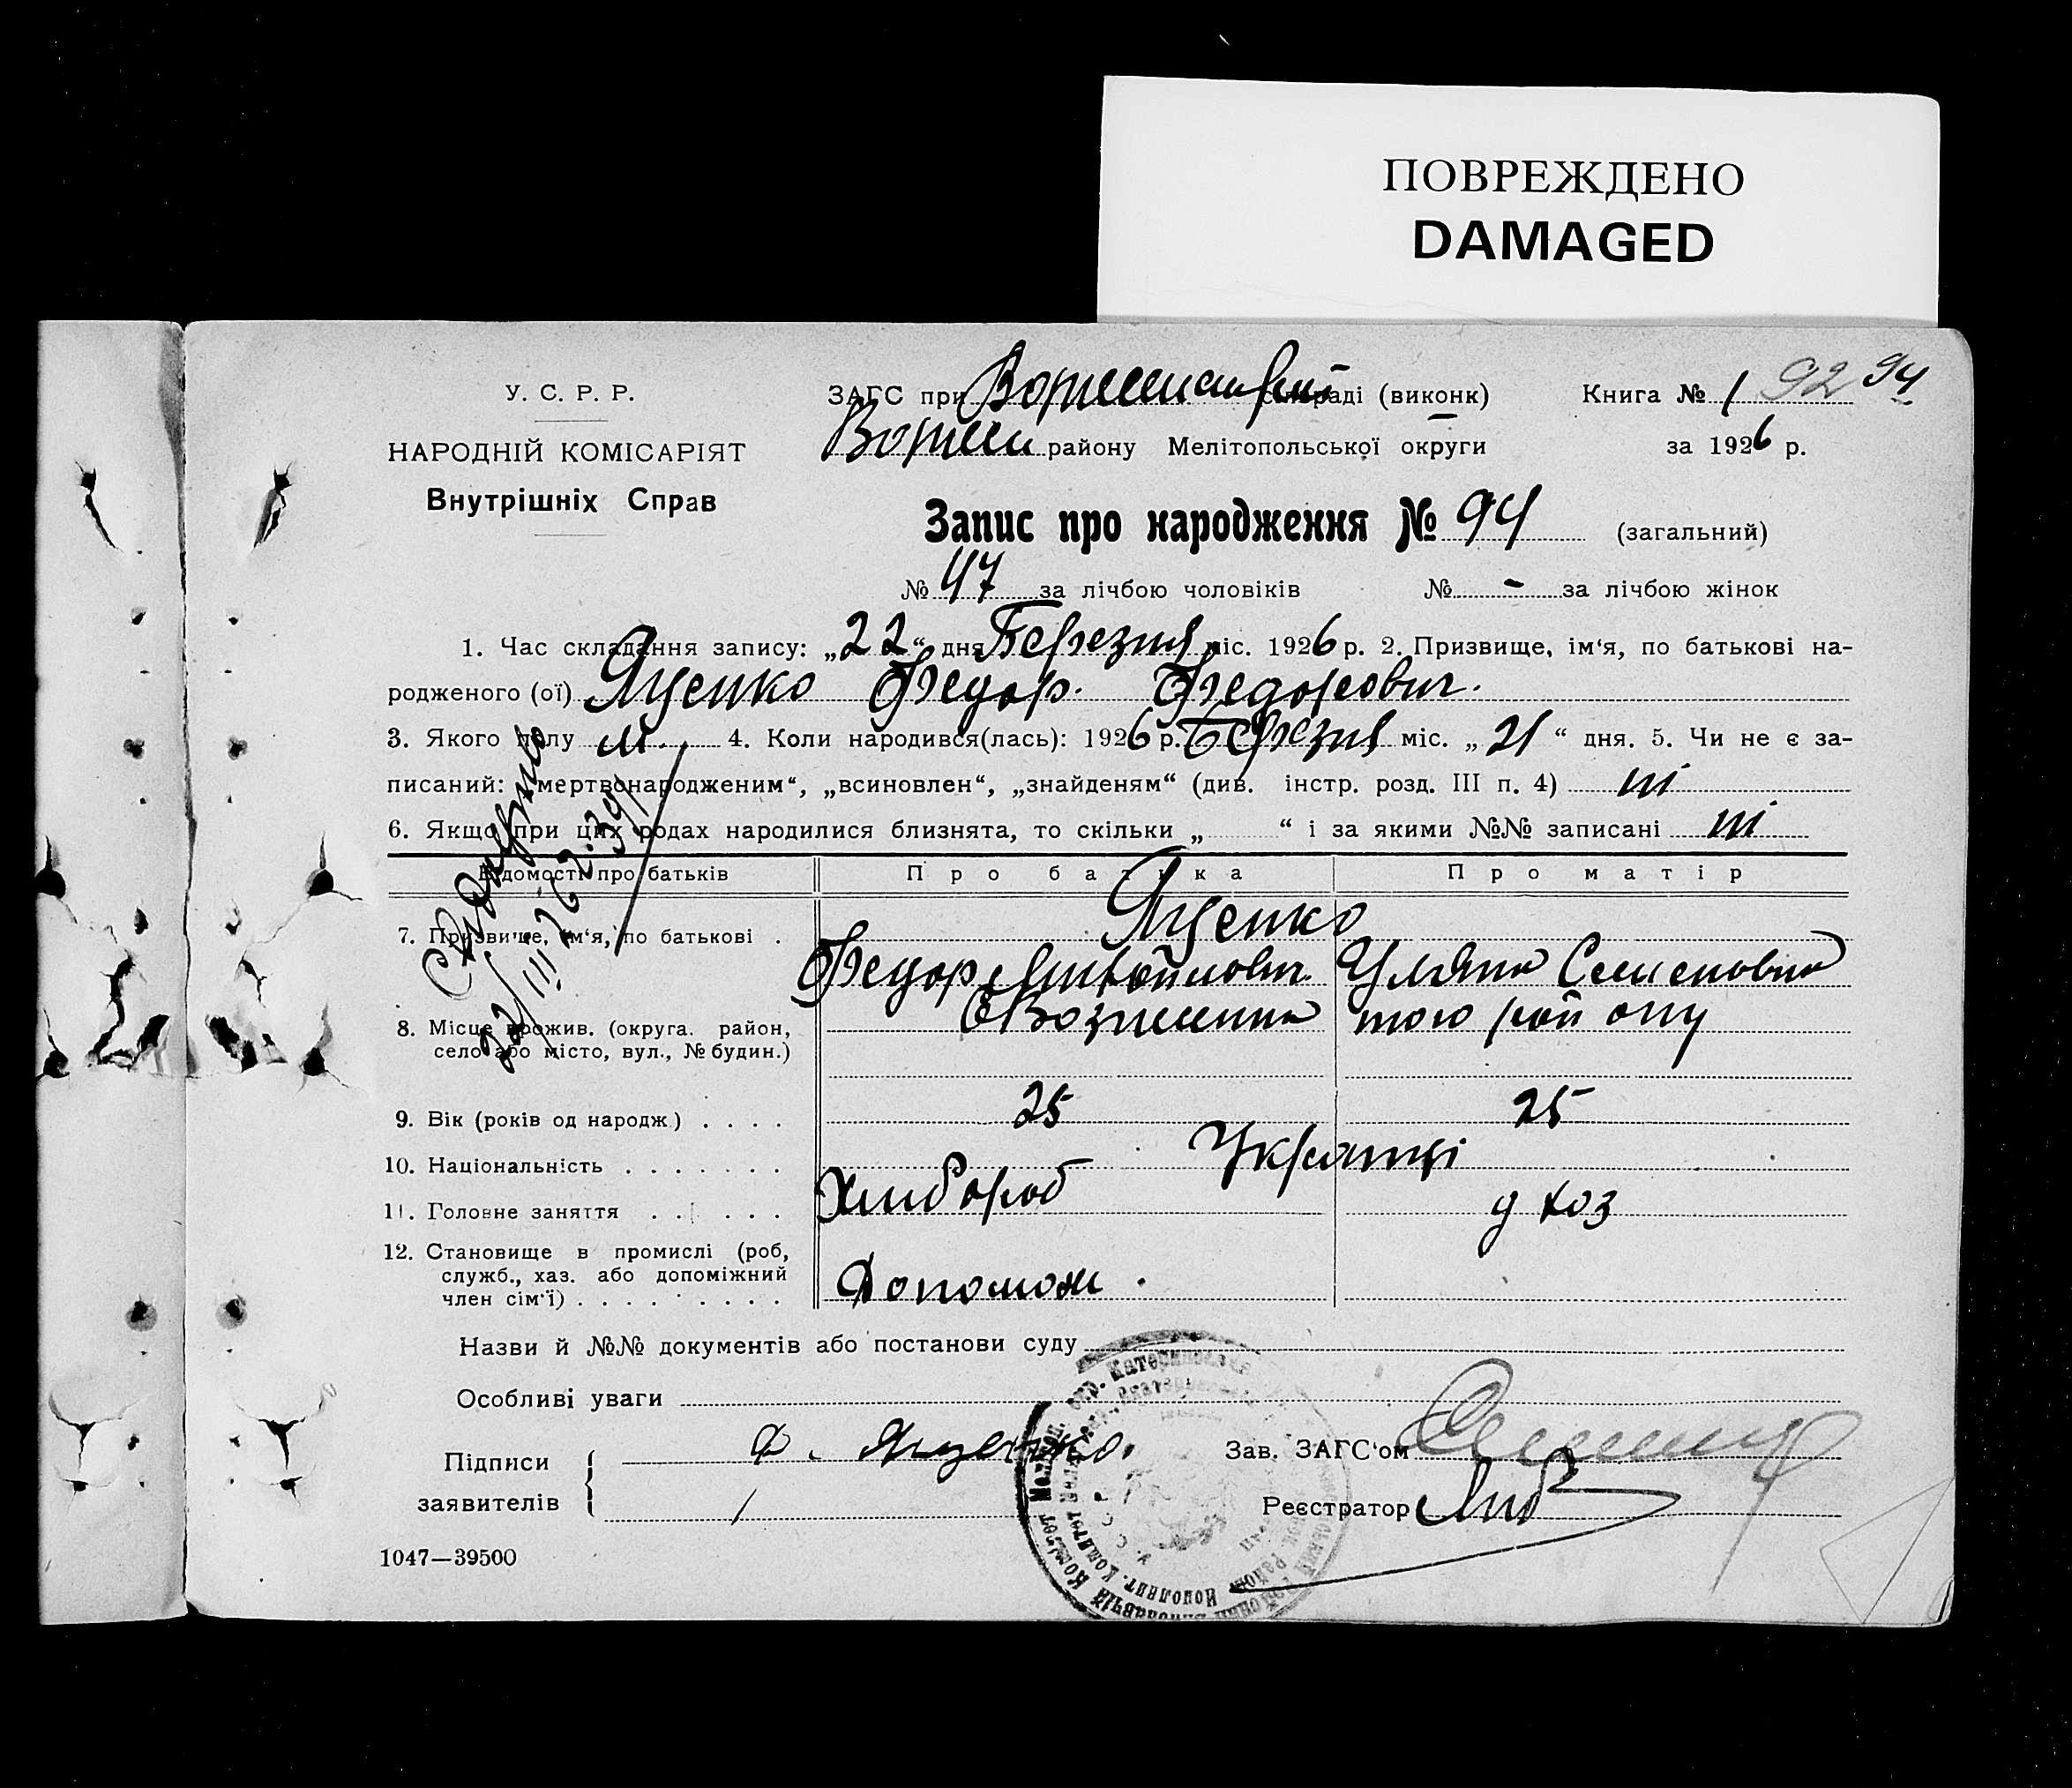 ПОВРЕЖДЕНО
DAMAGED
У. С. Р. Р.
НАРОДНІЙ КОМІСАРІЯТ
Внутрішніх Справ
ЗАГС при сільраді (виконк)
району Мелітопольської округи
Книга № 1 92 94
за 1926 р.
Запис про народження № 94 (загальний)
№ 47 за лічбою чоловіків № - за лічбою жінок
1. Час складання запису: „22“ дня Березня міс. 1926 р. 2. Призвище, ім‘я, по батькові на-
родженого (ої) Яценко Федор Федорович.
3. Якого полу м. 4. Коли народився(лась): 1926 р. Березня міс. „21“ дня. 5. Чи не є за-
писаний: „мертвонародженим“, „всиновлен“, „знайденям“ (див. інстр. розд. III п. 4) ні
6. Якщо при цих родах народилися близнята, то скільки „ “ і за якими №№ записані ні
Відомості про батьків Про батька Про матір
Яценко
7. Призвище, ім‘я, по батькові . Федор Михайлович Уляна Семеновна
8. Місце прожив. (округа. район,
село або місто, вул., № будин.)
С Вознесенка того району
9. Вік (років од народж.) . . . . 25 25
10. Національність . . . . . . . Українці
11. Головне заняття . . . . . . Хлібороб д хоз
12. Становище в промислі (роб,
служб., хаз. або допоміжний
член сім‘ї) . . . . . . . . . Допомож.
Назви й №№ документів або постанови суду
Особливі уваги
Підписи
заявителів
Ф. Яценко.
Зав. ЗАГС‘ом
Реєстратор
1047—39500